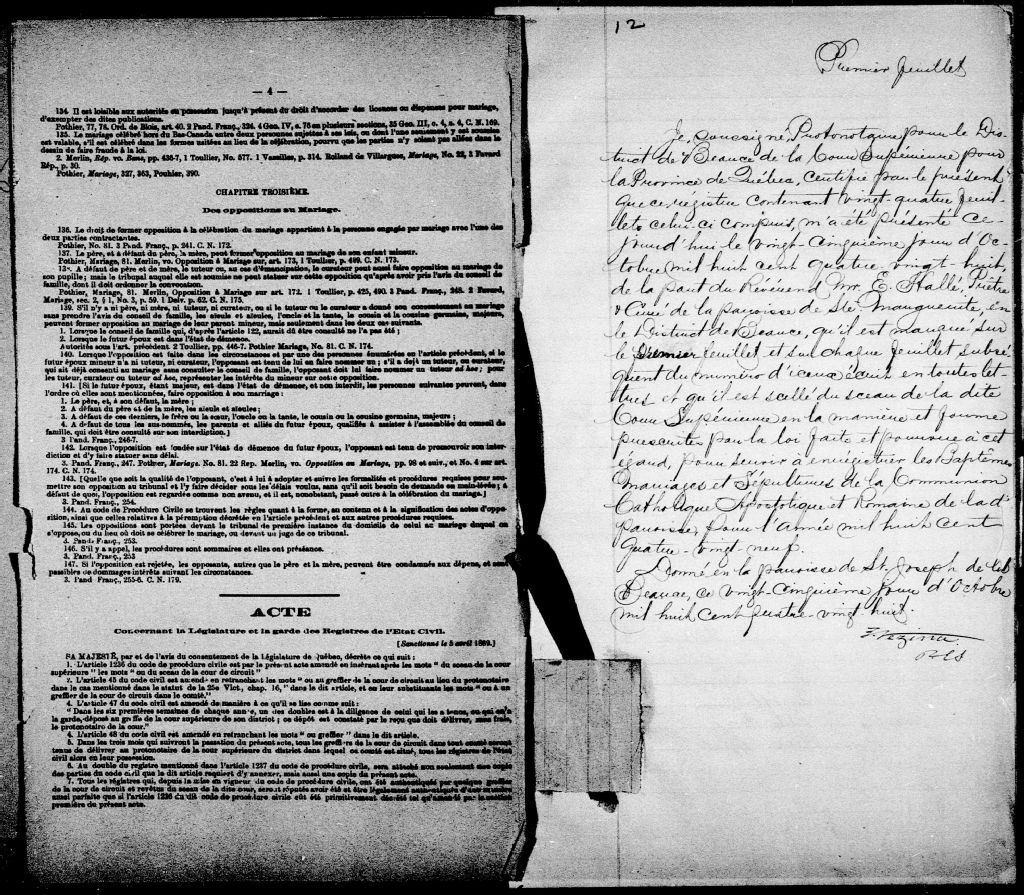 — 4 —
134. Il est loisible aux autorités en possession jusqu'à présent du droit d'accorder des licences ou dispenses pour mariage,
d'exempter des dites publications.
Pothier, 77, 78. Ord. de Blois, art. 40. 2 Pand. Franç., 324. 4 Geo. IV, c. 78 en plusieurs sections, 35 Geo. III, c. 4, s. 4, C. N. 169.
135. Le mariage célébré hors du Bas-Canada entre deux personnes sujettes à ses lois, ou dont l'une seulement y est soumise
est valable, s'il est célébré dans les formes usitées au lieu de la célébration, pourvu que les parties n'y soient pas allées dans le
dessin de faire fraude à la loi.
2. Merlin, Rép. vo. Bans, pp. 435-7, 1 Toullier, No. 577. 1 Vazeilles, p. 314. Rolland de Villargues, Mariage, No. 22, 3 Favard
Rép., p. 30.
Pothier, Mariage, 327, 363, Pouhier, 390.
CHAPITRE TROISIÈME.
Des oppositions au Mariage.
136. Le droit de former opposition à la célébration du mariage appartient à la personne engagée par mariage avec l'une des
deux parties contractantes.
Pothier, No. 81. 3 Pand. Franç., p. 241. C. N. 172.
137. Le père, et à défaut du père, la mère, peut former opposition au mariage de son enfant mineur.
Pothier, Mariage, 81. Merlin, vo. Opposition à Mariage sur, art. 173, 1 Toullier, p. 449. C. N. 173.
138. A défaut de père et de mère, le tuteur ou, au cas d'émancipation, le curateur peut aussi faire opposition au mariage de
son pupille; mais le tribunal auquel elle est soumise ne peut statuer sur cette opposition qu'après avoir pris l'avis du conseil de
famille, dont il doit ordonner la convocation.
Pothier, Mariage, 81. Merlin, Opposition à Mariage sur art. 172. 1 Toullier, p. 425, 490. 3 Pand. Franç., 245. 2 Favard,
Mariage, sec. 2, § 1, No. 3, p. 59. 1 Delv. p. 62. C. N. 175.
139. S'il n'y a ni père, ni mère, ni tuteur, ni curateur, ou si le tuteur ou le curateur a donné son consentement au mariage
sans prendre l'avis du conseil de famille, les aïeuls et aïeules, l'oncle et la tante, le cousin et la cousine germains, majeurs,
peuvent former opposition au mariage de leur parent mineur, mais seulement dans les deux cas suivants.
1. Lorsque le conseil de famille qui, d'après l'article 122, aurait dû être consulté ne l'a pas été;
2. Lorsque le futur époux est dans l'état de démence.
Autorités sous l'art. précédent. 2 Toullier, pp. 446-7. Pothier Mariage, No. 81. C. N. 174.
140. Lorsque l'opposition est faite dans les circonstances et par une des personnes énumérées en l'article précédent, si le
futur époux mineur n'a ni tuteur, ni curateur, l'opposant est tenu de lui en faire nommer un; s'il a déjà un tuteur, ou curateur,
qui ait déjà consenti au mariage sans consulter le conseil de famille, l'opposant doit lui faire nommer un tuteur ad hoc; pour
les tuteur, curateur ou tuteur ad hoc, représenter les intérêts du mineur sur cette opposition.
141. [Si le futur époux, étant majeur, est dans l'état de démence, et non interdit, les personnes suivantes peuvent, dans
l'ordre où elles sont mentionnées, faire opposition à son mariage:
1. Le père, et, à son défaut, la mère;
2. A défaut du père et de la mère, les aïeuls et aïeules;
3. A défaut de ces derniers, le frère ou la sœur, l'oncle ou la tante, le cousin ou la cousine germains, majeurs;
4. A défaut de tous les sus-nommés, les parents et alliés du futur époux, qualifiés à assister à l'assemblée du conseil de
famille, qui doit être consulté sur son interdiction.]
3 Pand. Franç., 246-7.
142. Lorsque l'opposition est fondée sur l'état de démence du futur époux, l'opposant est tenu de promouvoir son inter-
diction et d'y faire statuer sans délai.
3. Pand. Franç., 247. Pothier, Mariage. No. 81. 22 Rep. Merlin, vo. Opposition au Mariage, pp. 98 et suiv., et No. 4 sur art.
174. C. N. 174.
143. [Quelle que soit la qualité de l'opposant, c'est à lui à adopter et suivre les formalités et procédures requises pour sou-
mettre son opposition au tribunal et l'y faire décider sous les délais voulus, sans qu'il soit besoin de demande en main-levée; à
défaut de quoi, l'opposition est regardée comme non avenue, et il est, nonobstant, passé outre à la célébration du mariage.]
3. Pand. Franç., 254.
144. Au code de Procédure Civile se trouvent les règles quant à la forme, au contenu et à la signification des actes d'oppo-
sition, ainsi que celles relatives à la péremption décrétée en l'article précédent et aux autres procédures requises.
145. Les oppositions sont portées devant le tribunal de première instance du domicile de celui au mariage duquel on
s'oppose, ou du lieu où doit se célébrer le mariage, ou devant un juge de ce tribunal.
3. Pand. Franç., 253.
146. S'il y a appel, les procédures sont sommaires et elles ont préséance.
3. Pand. Franç., 253
147. Si l'opposition est rejetée, les opposants, autres que le père et la mère, peuvent être condamnés aux dépens, et sont
passibles de dommages-intérêts suivant les circonstances.
3. Pand. Franç., 255-6. C. N. 179.
ACTE
Concernant la Législature et la garde des Registres de l'Etat Civil.
SA MAJESTÉ, par et de l'avis du consentement de la Législature de Québec, décrète ce qui suit:
1. L'article 1236 du code de procédure civile est par le présent acte amendé en insérant après les mots "du sceau de la cour
supérieure" les mots "ou du sceau de la cour de circuit"
2. L'article 45 du code civil est amendé en retranchant les mots "ou au greffier de la cour de circuit au lieu du protonotaire
dans le cas mentionné dans le statut de la 25e Vict., chap. 16," dans le dit article, et en leur substituant les mots "ou à un
greffier de la cour de circuit dans le comté."
4. L'article 47 du code civil est amendé de manière à ce qu'il se lise comme suit:
"Dans les six premières semaines de chaque année, un des doubles est à la diligence de celui qui les a tenus, ou qui en a
la garde, déposé au greffe de la cour supérieure de son district; ce dépôt est constaté par le reçu que doit délivrer, sans frais,
le protonotaire de la cour."
4. L'article 48 du code civil est amendé en retranchant les mots "ou greffier" dans le dit article.
5. Dans les trois mois qui suivront la passation du présent acte, tous les greffiers de la cour de circuit dans tout comté seront
tenus de délivrer au protonotaire de la cour supérieure du district dans lequel ce comté est situé, tous les registres de l'état
civil alors en leur possession.
6. Au double du registre mentionné dans l'article 1237 du code de procédure civile, sera attaché non seulement une copie
des parties du code civil que le dit article requiert d'y annexer, mais aussi une copie du présent acte.
7. Tous les registres qui, depuis la mise en vigueur du code de procédure civile, ont été authentiqués par quelque greffier
de la cour de circuit et revêtus du sceau de la dite cour, seront réputés avoir été et être légalement authentiqués d'une manière
aussi parfaite que si l'article 1236 du dit code de procédure civile eût été primitivement décrété tel qu'amendé par la section
première du présent acte.
12
Premier feuillet
Je, soussigné, Protonotaire pour le Dis-
trict de Beauce de la Cour Supérieure pour
la Province de Québec, certifie par le présent
que ce registre contenant vingt-quatre feuil-
lets celui-ci compris, m'a été présenté ce-
jourd'hui le vingt-cinquième jour d'Oc-
tobre mil huit cent quatre-vingt-huit,
de la part du Révérend Mr. E. Hallé, Prêtre
& Curé de la paroisse de Ste Marguerite, en
le District de Beauce, qu'il est marqué sur
le premier feuillet et sur chaque feuillet subsé-
quent du numéro d'iceux écrit en toutes let-
tres et qu'il est scellé du sceau de la dite
Cour Supérieure en la manière et forme
prescrites par la loi faite et pourvue à cet
égard, pour servir à enrégistrer les Baptêmes
Mariages et Sépultures de la Communion
Catholique Apostolique et Romaine de la dt
paroisse, pour l'année mil huit cent
quatre-vingt-neuf.
Donné en la paroisse de St. Joseph de la
Beauce, ce vingt-cinquième jour d'Octobre
mil huit cent quatre-vingt huit.
Vézina
PCS